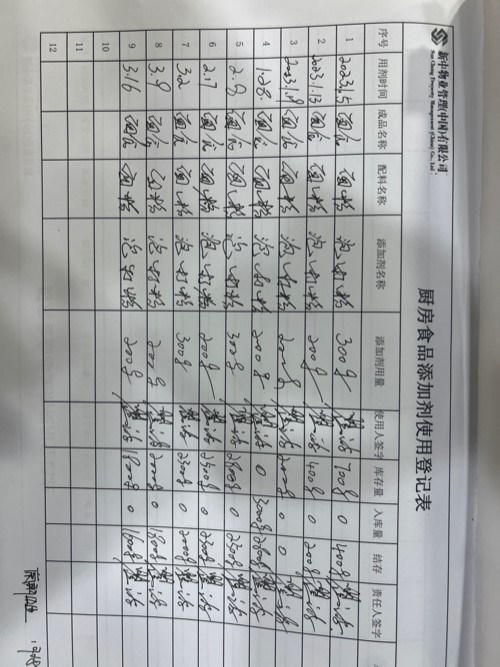 新中物业管理(中国)有限公司
Sun Chung Property Management (China) Co., Ltd
厨房食品添加剂使用登记表
序号 用剂时间 成品名称 配料名称 添加剂名称 添加剂用量 使用人签字 库存量 入库量 结存 责任人签字
1 2023.1.5 面食 面粉 泡打粉 300g 700g 0 400g
2 2023.1.13 面食 面粉 泡打粉 200g 400g 0 200g
3 面食 面粉 泡打粉 200g 200g 0 0
4 1.28. 面食 面粉 泡打粉 200g 0 3000g 2800g
5 2.8 面食 面粉 泡打粉 300g 2800g 0 2500g
6 2.17 面食 面粉 泡打粉 200g 2500g 0 2300g
7 3.2 面食 面粉 泡打粉 300g 2300g 0 2000g
8 3.9 面食 面粉 泡打粉 200g 2000g 0 1800g
9 3.16 面食 面粉 泡打粉 200g 1800g 0 1600g
10
11
12